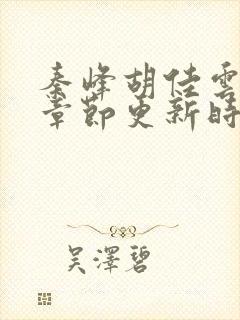 秦峰胡佳雲
章節更新時
吳澤碧